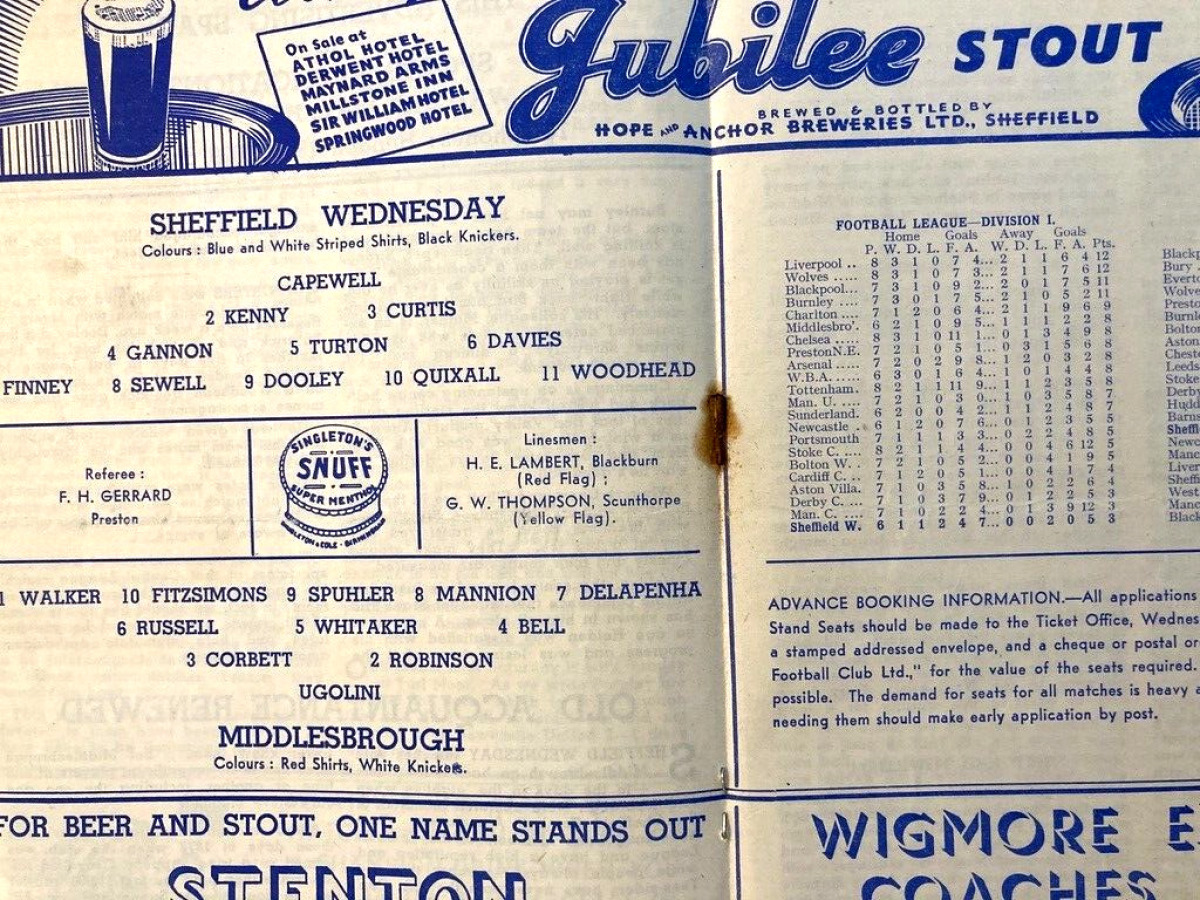 On Sale at
ATHOL HOTEL
DERWENT HOTEL
MAYNARD ARMS
MILLSTONE INN
SIR WILLIAM HOTEL
SPRINGWOOD HOTEL
Jubilee STOUT
BREWED & BOTTLED BY
HOPE AND ANCHOR BREWERIES LTD., SHEFFIELD
SHEFFIELD WEDNESDAY
Colours : Blue and White Striped Shirts, Black Knickers.
CAPEWELL
2 KENNY 3 CURTIS
4 GANNON 5 TURTON 6 DAVIES
FINNEY 8 SEWELL 9 DOOLEY 10 QUIXALL 11 WOODHEAD
Referee :
F. H. GERRARD
Preston
SINGLETON'S
SNUFF
SUPER MENTHOL
SINGLETON & COLE · BIRMINGHAM
Linesmen :
H. E. LAMBERT, Blackburn
(Red Flag) :
G. W. THOMPSON, Scunthorpe
(Yellow Flag).
1 WALKER 10 FITZSIMONS 9 SPUHLER 8 MANNION 7 DELAPENHA
6 RUSSELL 5 WHITAKER 4 BELL
3 CORBETT 2 ROBINSON
UGOLINI
MIDDLESBROUGH
Colours : Red Shirts, White Knickers.
FOR BEER AND STOUT, ONE NAME STANDS OUT
STENTON
FOOTBALL LEAGUE—DIVISION I.
Home Goals Away Goals
P. W. D. L. F. A. W. D. L. F. A. Pts.
Liverpool .. 8 3 1 0 7 4... 2 1 1 6 4 12
Wolves ..... 8 3 1 0 7 3... 2 1 1 7 6 12
Blackpool... 7 3 1 0 9 2... 2 0 1 7 5 11
Burnley ..... 7 3 0 1 7 5... 2 1 0 5 2 11
Charlton .... 7 1 2 0 6 4... 2 1 1 9 6 9
Middlesbro'. 6 2 1 0 9 5... 1 1 1 2 2 8
Chelsea .... 8 3 1 0 11 1... 0 1 3 4 9 8
PrestonN.E. 7 2 1 0 5 1... 0 3 1 5 6 8
Arsenal ..... 7 2 0 2 9 8... 1 2 0 3 2 8
W.B.A. ..... 6 3 0 1 6 4... 1 0 1 4 4 8
Tottenham. 8 2 1 1 11 9... 1 1 2 3 5 8
Man. U. .... 7 2 1 0 3 0... 1 0 3 5 8 7
Sunderland. 6 2 0 0 4 2... 1 1 2 4 8 7
Newcastle . 6 1 2 0 7 6... 0 1 2 3 5 5
Portsmouth 7 1 1 1 3 3... 0 2 2 4 8 5
Stoke C. .... 8 2 1 1 4 4... 0 0 4 6 12 5
Bolton W. . 7 2 1 0 5 2... 0 0 4 1 9 5
Cardiff C. .. 7 1 2 0 5 1... 0 0 4 1 7 4
Aston Villa. 7 1 0 3 5 8... 1 0 2 2 6 4
Derby C. ... 7 1 0 3 7 9... 0 1 2 2 5 3
Man. C. .... 7 0 2 2 2 4... 0 1 3 9 12 3
Sheffield W. 6 1 1 2 4 7... 0 0 2 0 5 3
Blackp
Bury
Everto
Wolve
Presto
Burnl
Bolton
Aston
Chest
Leeds
Stoke
Derby
Hudd
Barns
Sheffi
Newc
Manc
Liver
Sheffi
West
Manc
Black
ADVANCE BOOKING INFORMATION.—All applications
Stand Seats should be made to the Ticket Office, Wednes
a stamped addressed envelope, and a cheque or postal or
Football Club Ltd.," for the value of the seats required.
possible. The demand for seats for all matches is heavy
needing them should make early application by post.
WIGMORE E
COACHES